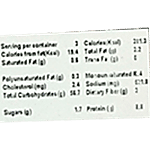 Serving per container 3 Calories(Kcal)
Calories from fat(Kcal) 19.4 Total Fat (g) 2.2
Saturated Fat (g) 0.6 Trans Fa (g) 0
Polyunsaturated Fat (g) 0.3 Monoun saturated
Cholesterol(mg) 2.4 Sodium (mg)
Total Carbohydrates (g) Dietary Fiber (g) 3
Sugars (g) 1.7 Protein (g)